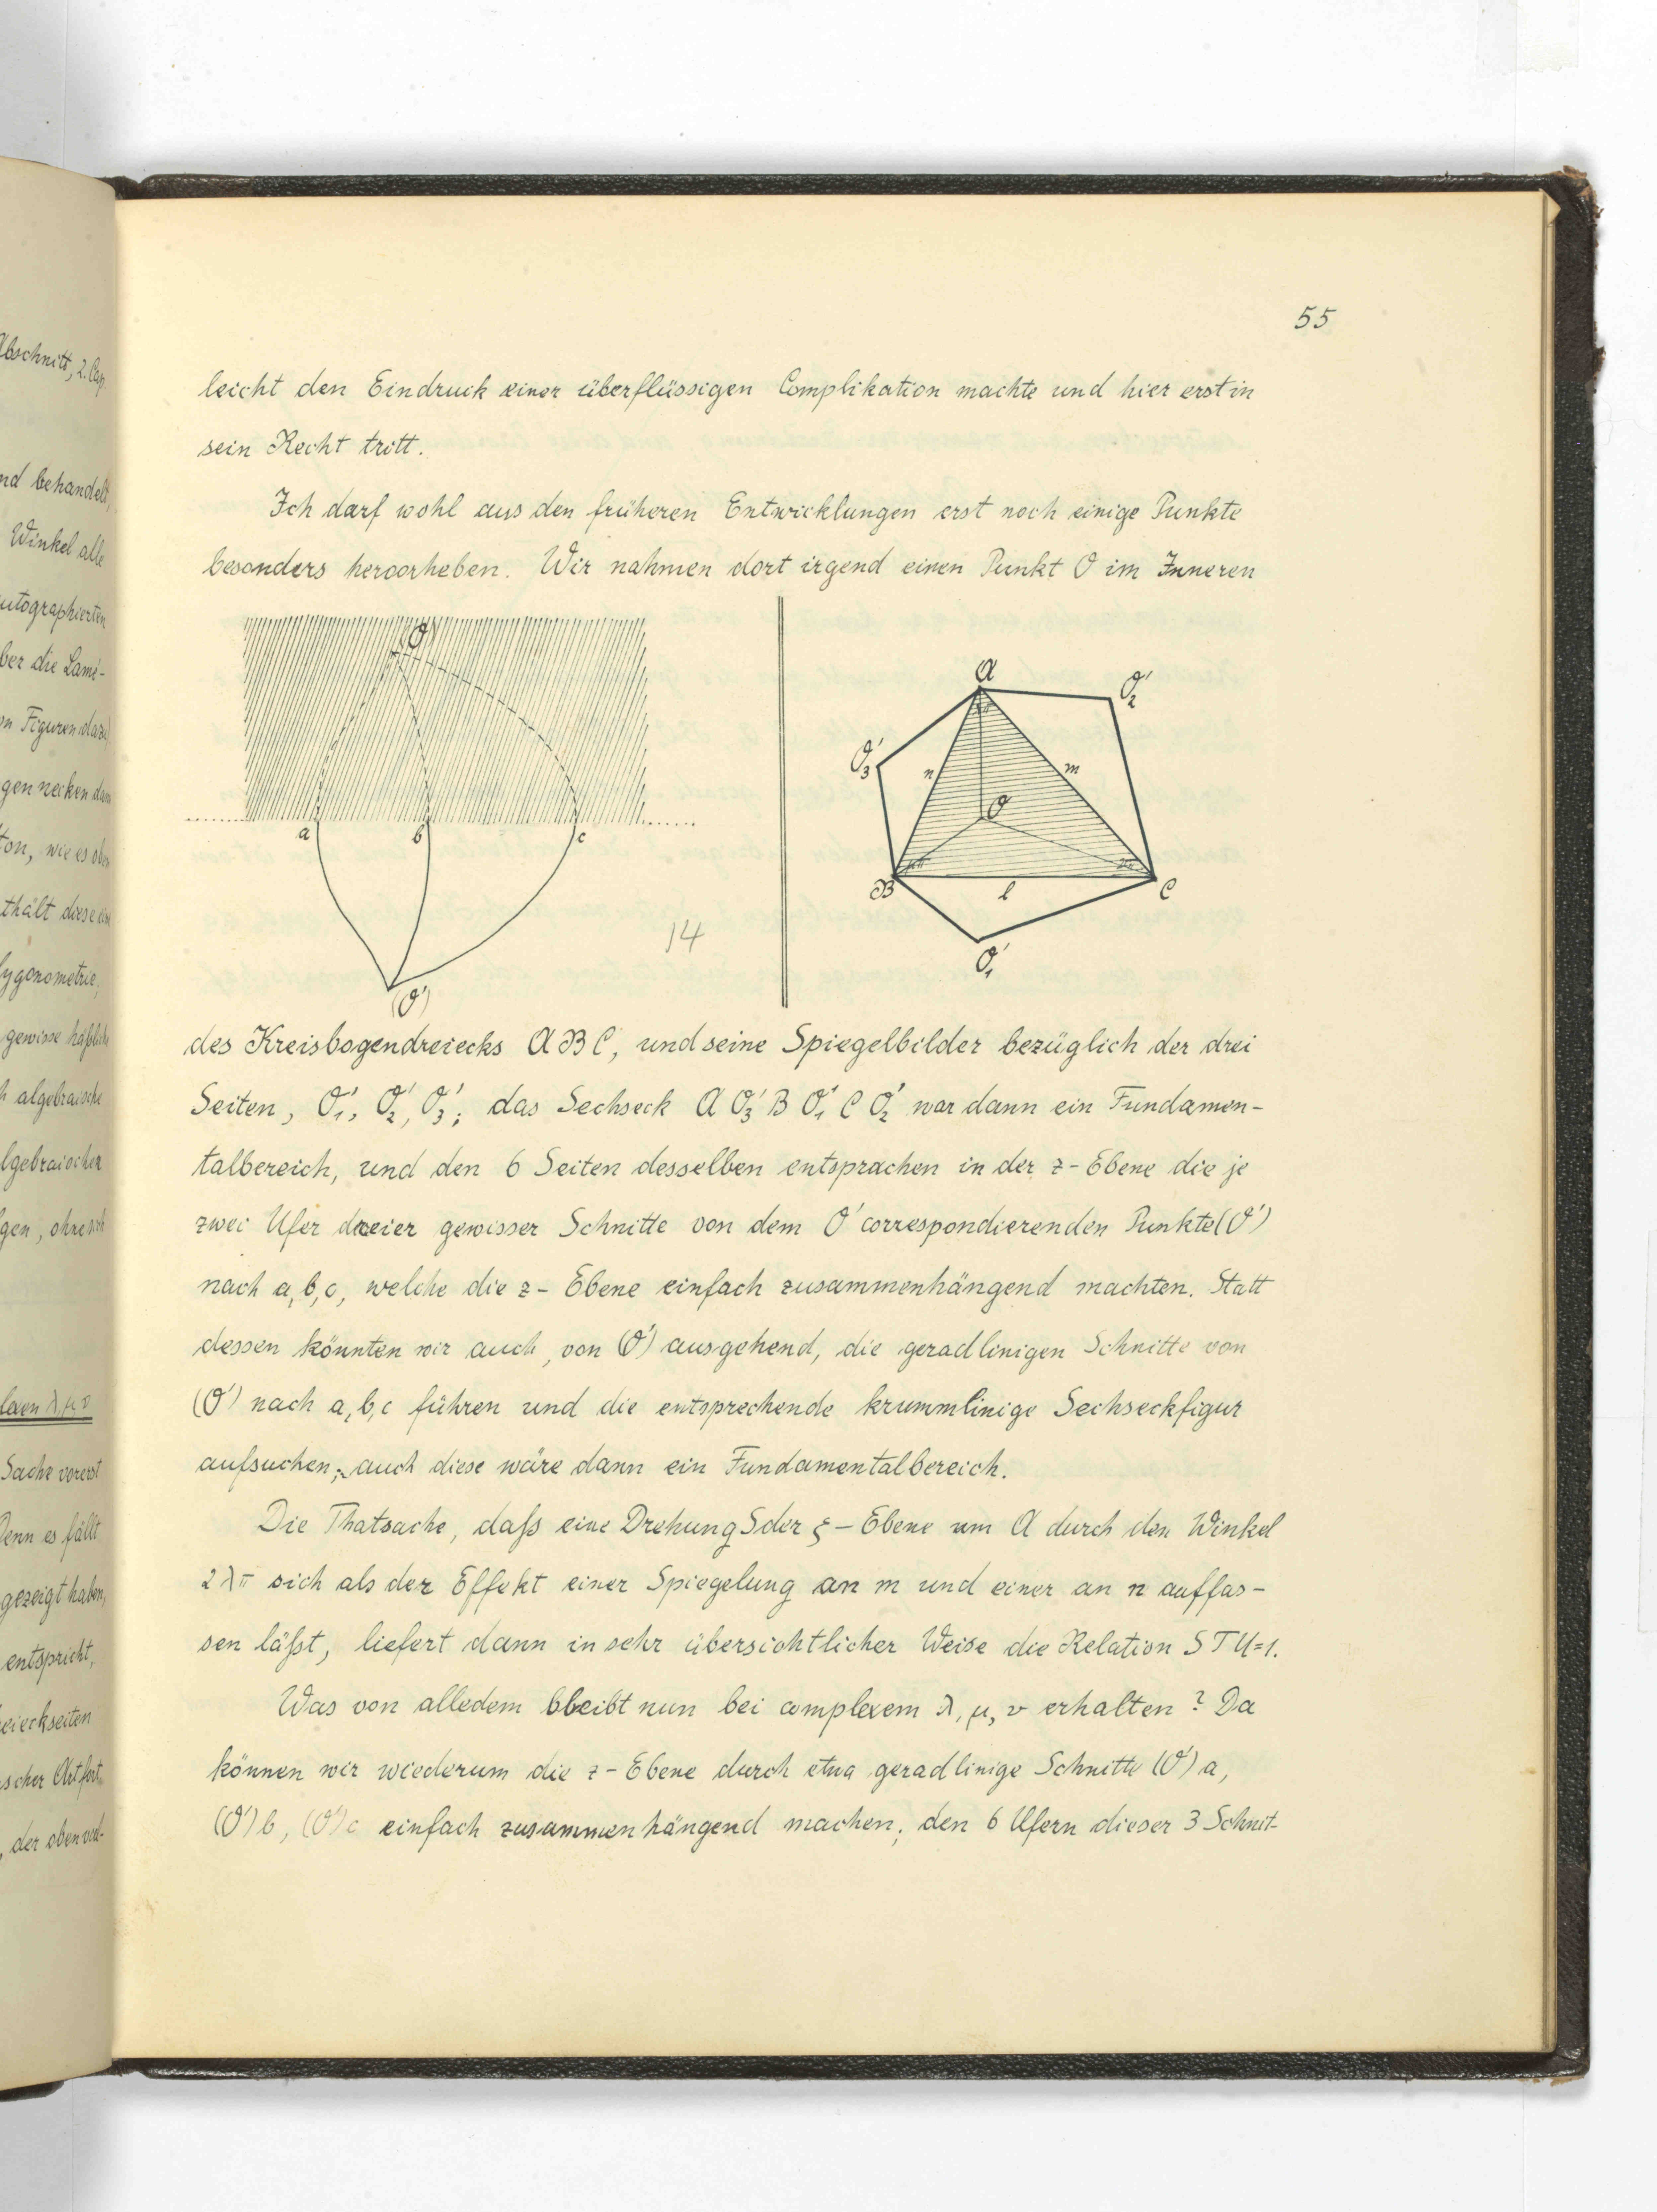 55
leicht den Eindruck einer überflüssigen Complikation machte und hier erst in
sein Recht tritt.
Ich darf wohl aus den früheren Entwicklungen erst noch einige Punkte
besonders hervorheben. Wir nahmen dort irgend einen Punkt O im Inneren
(O)
a
b
c
(O')
14
A
O'2
O'3
n
m
O
B
l
C
O'1
des Kreisbogendreiecks A B C, und seine Spiegelbilder bezüglich der drei
Seiten, O'1, O'2, O'3; das Sechseck A O'3 B O'1 C O'2 war dann ein Fundamen-
talbereich, und den 6 Seiten desselben entsprachen in der z-Ebene die je
zwei Ufer dreier gewisser Schnitte von dem O' correspondierenden Punkte (O')
nach a, b, c, welche die z-Ebene einfach zusammenhängend machten. Statt
dessen könnten wir auch, von (O') ausgehend, die geradlinigen Schnitte von
(O') nach a, b, c führen und die entsprechende krummlinige Sechseckfigur
aufsuchen; auch diese wäre dann ein Fundamentalbereich.
Die Thatsache, daß eine Drehung S der ξ-Ebene um A durch den Winkel
2λπ sich als der Effekt einer Spiegelung an m und einer an n auffas-
sen läßt, liefert dann in sehr übersichtlicher Weise die Relation STU=1.
Was von alledem bleibt nun bei complexem λ, μ, ν erhalten? Da
können wir wiederum die z-Ebene durch etwa geradlinige Schnitte (O')a,
(O')b, (O')c einfach zusammenhängend machen; den 6 Ufern dieser 3 Schnit-
bschnitt, 2. Cap.
nd behandelt,
Winkel alle
utographierten
ber die Lamé-
on Figuren dazu
gen necken dam
ton, wie es oben
thält diese ein
lygonometrie,
gewisse häßlich
h algebraische
lgebraischer
gen, ohne sich
lexen λ, μ, ν
Sache vorerst
Denn es fällt
gezeigt haben,
entspricht,
eieckseiten
scher Art fort,
, der oben ved-